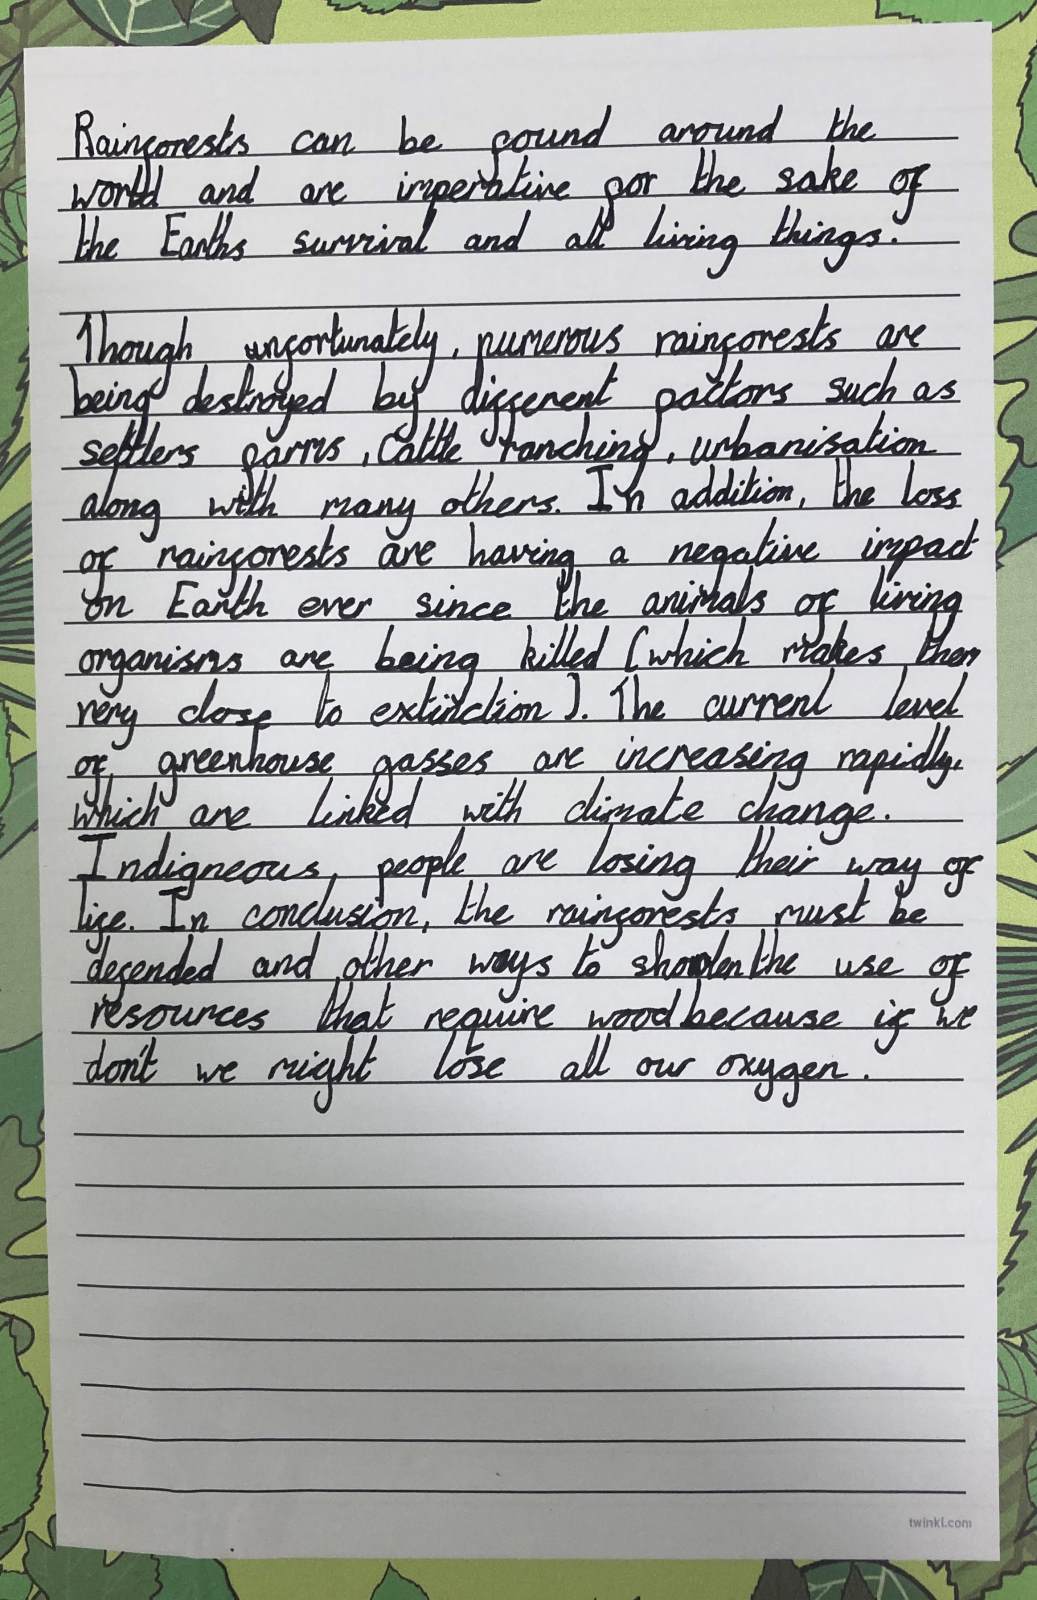 Rainforests can be found around the
world and are imperative for the sake of
the Earths survival and all living things.
Though unfortunately, numerous rainforests are
being destroyed by different factors such as
settlers farms, Cattle ranching, urbanisation
along with many others. In addition, the loss
of rainforests are having a negative impact
on Earth ever since the animals of living
organisms are being killed (which makes them
very close to extinction). The current level
of greenhouse gasses are increasing rapidly,
which are linked with climate change.
Indigneous, people are losing their way of
life. In conclusion, the rainforests must be
defended and other ways to shorten the use of
resources that require wood because if we
don't we might lose all our oxygen.
twinkl.com